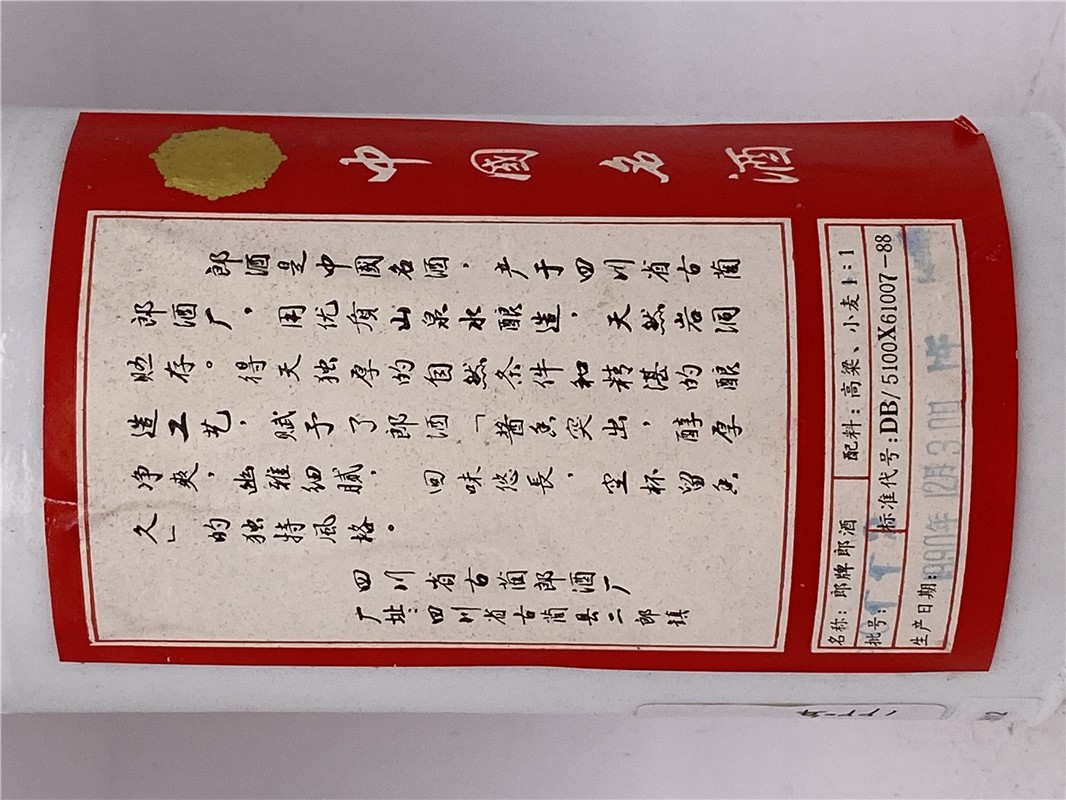 中國名酒
郎酒是中國名酒，产于四川省古蔺
郎酒厂，用优质山泉水酿造，天然岩洞
贮存。得天独厚的自然条件和精湛的酿
造工艺，赋予了郎酒「酱香突出，醇厚
净爽，幽雅细腻，回味悠長，空杯留香
久」的独特風格。
四川省古蔺郎酒厂
厂址：四川省古蔺县二郎镇
名称：郎牌郎酒 配料：高粱、小麦1:1
批号： 标准代号：DB/5100X61007-88
生产日期：1990年12月30日